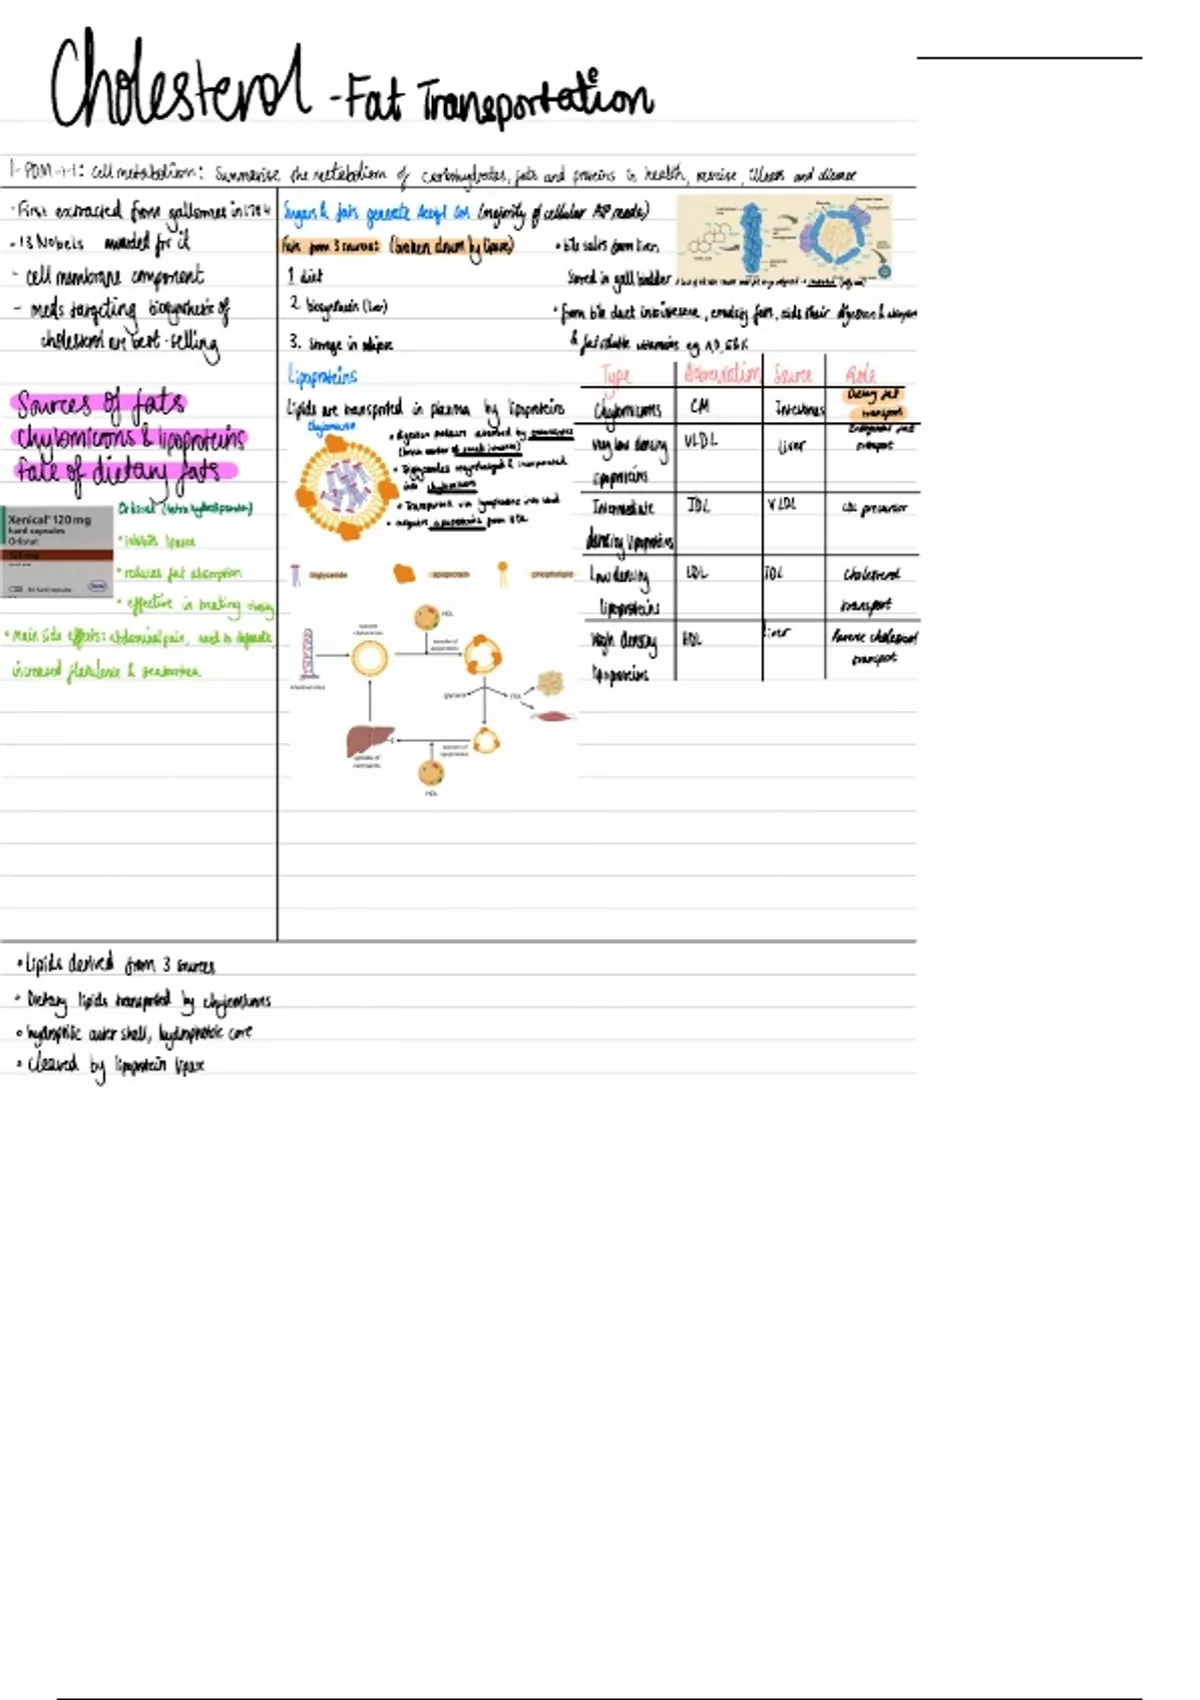 Cholesterol - Fat Transportation
cell metabolism: Summarise the metabolism of carbohydrates, fats and proteins in health, exercise, illness and disease
- First extracted from gallstones in 1784
- 13 Nobels awarded for it
- cell membrane component
- meds targeting biosynthesis of
cholesterol are best-selling
Sources of fats
chylomicrons & lipoproteins
fate of dietary fats
Xenical® 120 mg
hard capsules
Orlistat
Orlistat
• inhibits lipase
• reduces fat absorption
• effective in treating obesity
• Main side effects: abdominal pain, need to defecate,
increased flatulence & steatorrhea
Sugars & fats generate Acetyl CoA (majority of cellular ATP needs)
Fats from 3 sources (broken down by lipase)
1. diet
2. biosynthesis (liver)
3. storage in adipose
• bile salts from liver,
stored in gall bladder
• from bile duct into intestine, emulsify fats, aids their digestion &
& fat soluble vitamins eg A, D, E & K
Lipoproteins
Lipids are transported in plasma by lipoproteins
Chylomicron
• Triglycerides resynthesised & incorporated
into chylomicrons
• Transported via lymphatics into blood
• acquire apoproteins from HDL
triglyceride
apoprotein
phospholipid
HDL
glycerol
FFA
transfer of
apoproteins
uptake of
remnants
HDL
Type Abbreviation Source Role
Chylomicrons CM Intestines Dietary fat
transport
Very low density VLDL Liver Endogenous fat
transport
lipoproteins
Intermediate IDL VLDL LDL precursor
density lipoproteins
Low density LDL IDL Cholesterol
lipoproteins transport
High density HDL Liver Reverse cholesterol
transport
lipoproteins
• Lipids derived from 3 sources
• Dietary lipids transported by chylomicrons
• hydrophilic outer shell, hydrophobic core
• Cleaved by lipoprotein lipase